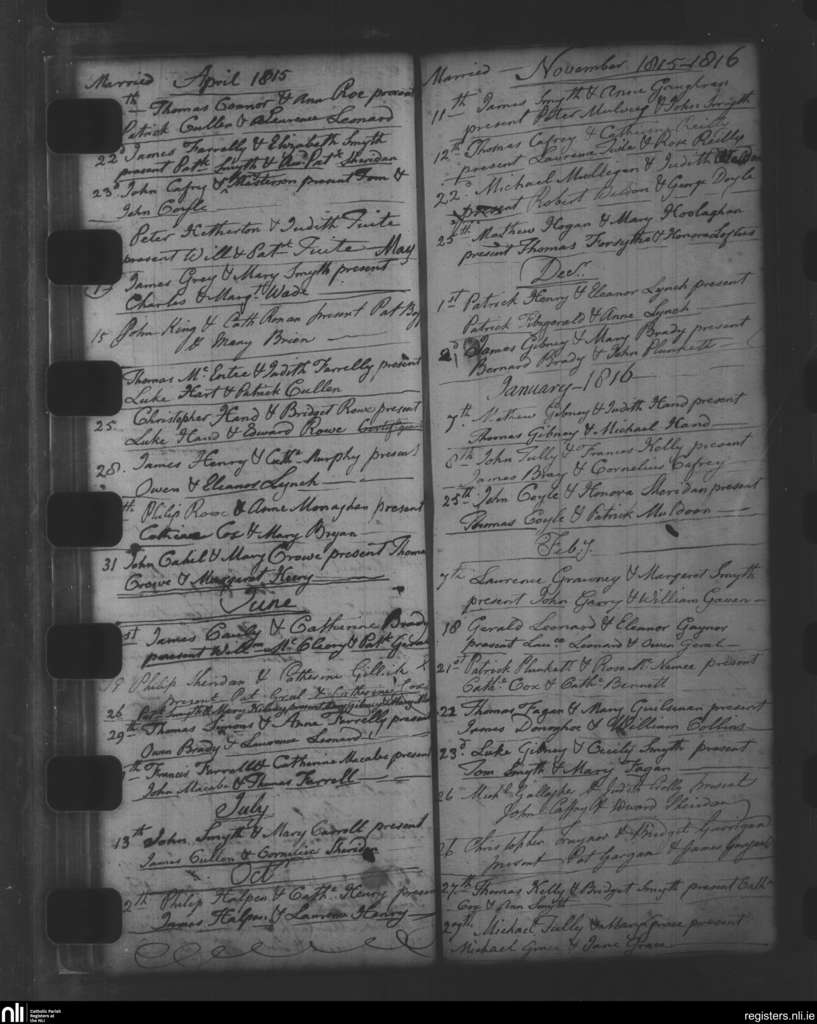 Married April 1815
th Thomas Connor & Ann Roe present
Patrick Cullen & Laurence Leonard
22d James Farrelly & Elizabeth Smyth
present Patk. Smyth & Patk. Sheridan
23d John Cafry & Masterson present Tom &
John Coyle
Peter Hetherton & Judith Fuite
present Will & Patk. Fuite May
17 James Grey & Mary Smyth present
Charles & Margt. Wade
15 John King & Cath Ronan present Pat
& Mary Brien
Thomas Mc. Entee & Judith Farrelly present
Luke Hart & Patrick Cullen
25 Christopher Hand & Bridget Roux present
Luke Hand & Edward Rowe
28. James Henry & Cathe. Murphy present
Owen & Eleanor Lynch
th Philip Rose & Anne Monaghan present
Cox & Mary Bryan
31 John Cahel & Mary Crowe present Thoms
Crowe & Margaret Keery
June
1st James Cauly & Catherine Brady
present Willm Mc. Cleary & Patk.
18 Philip Sheridan & Catherine Gillick
present Pat Geral & Catherine Cox
26 Patk. Smyth & Mary present
29th Thomas Simons & Anne Farrelly present
Owen Brady & Laurence Leonard
th Francis Farrell & Catherine Macabe present
John Macabe & Thomas Farrell
July
13th John Smyth & Mary Carroll present
James Cullen & Cornelius Sheridan
Oct
2th Philip Halpen & Cathe. Henry present
James Halpen & Laurence Henry
Married November 1815-1816
11th James Smyth & Anne Gaughran
present Peter Mulvey & John Smyth
12th Thomas Cafrey & Catherine
present Laurence Fuite & Rose Reilly
22d. Michael Mullegan & Judith
present Robert & George Doyle
25th Mathew Hogan & Mary Hoolaghan
present Thomas Forsythe & Honora Loftus
Decr.
1st Patrick Henry & Eleanor Lynch present
Patrick Fitzgerald & Anne Lynch
2d James Gibney & Mary Brady present
Bernard Brady & John Plunkett
January 1816
7th. Mathew Gibney & Judith Hand present
Thomas Gibney & Michael Hand
8th John Tully & Frances Kelly present
James Bray & Cornelius Cafrey
25th John Coyle & Honora Sheridan present
Thomas Coyle & Patrick Muldoon
Feby.
7th Laurence Grawney & Margaret Smyth
present John Garry & William Gaven
18 Gerald Leonard & Eleanor Gaynor
present Lauce Leonard & Owen Geral
21st Patrick Plunkett & Rose Mc. Namee present
Cathe. Cox & Cathe. Bennett
22 Thomas Fagan & Mary Guelsman present
James Donoghoe & William Collins
23d. Luke Gibney & Cecily Smyth present
Tom Smyth & Mary Fagan
26 Michl. Gallagher & Judith present
John Caffry & Edward Sheridan
26 Christopher Traynor & Bridget Garrigan
present Pat Gargan & James
27th Thomas Kelly & Bridget Smyth present Cathe
Cox & Ann Smyth
29th. Michael Tully & Mary Grace present
Michael Grace & Jane Grace
nli
Catholic Parish
Registers at
the NLI
registers.nli.ie